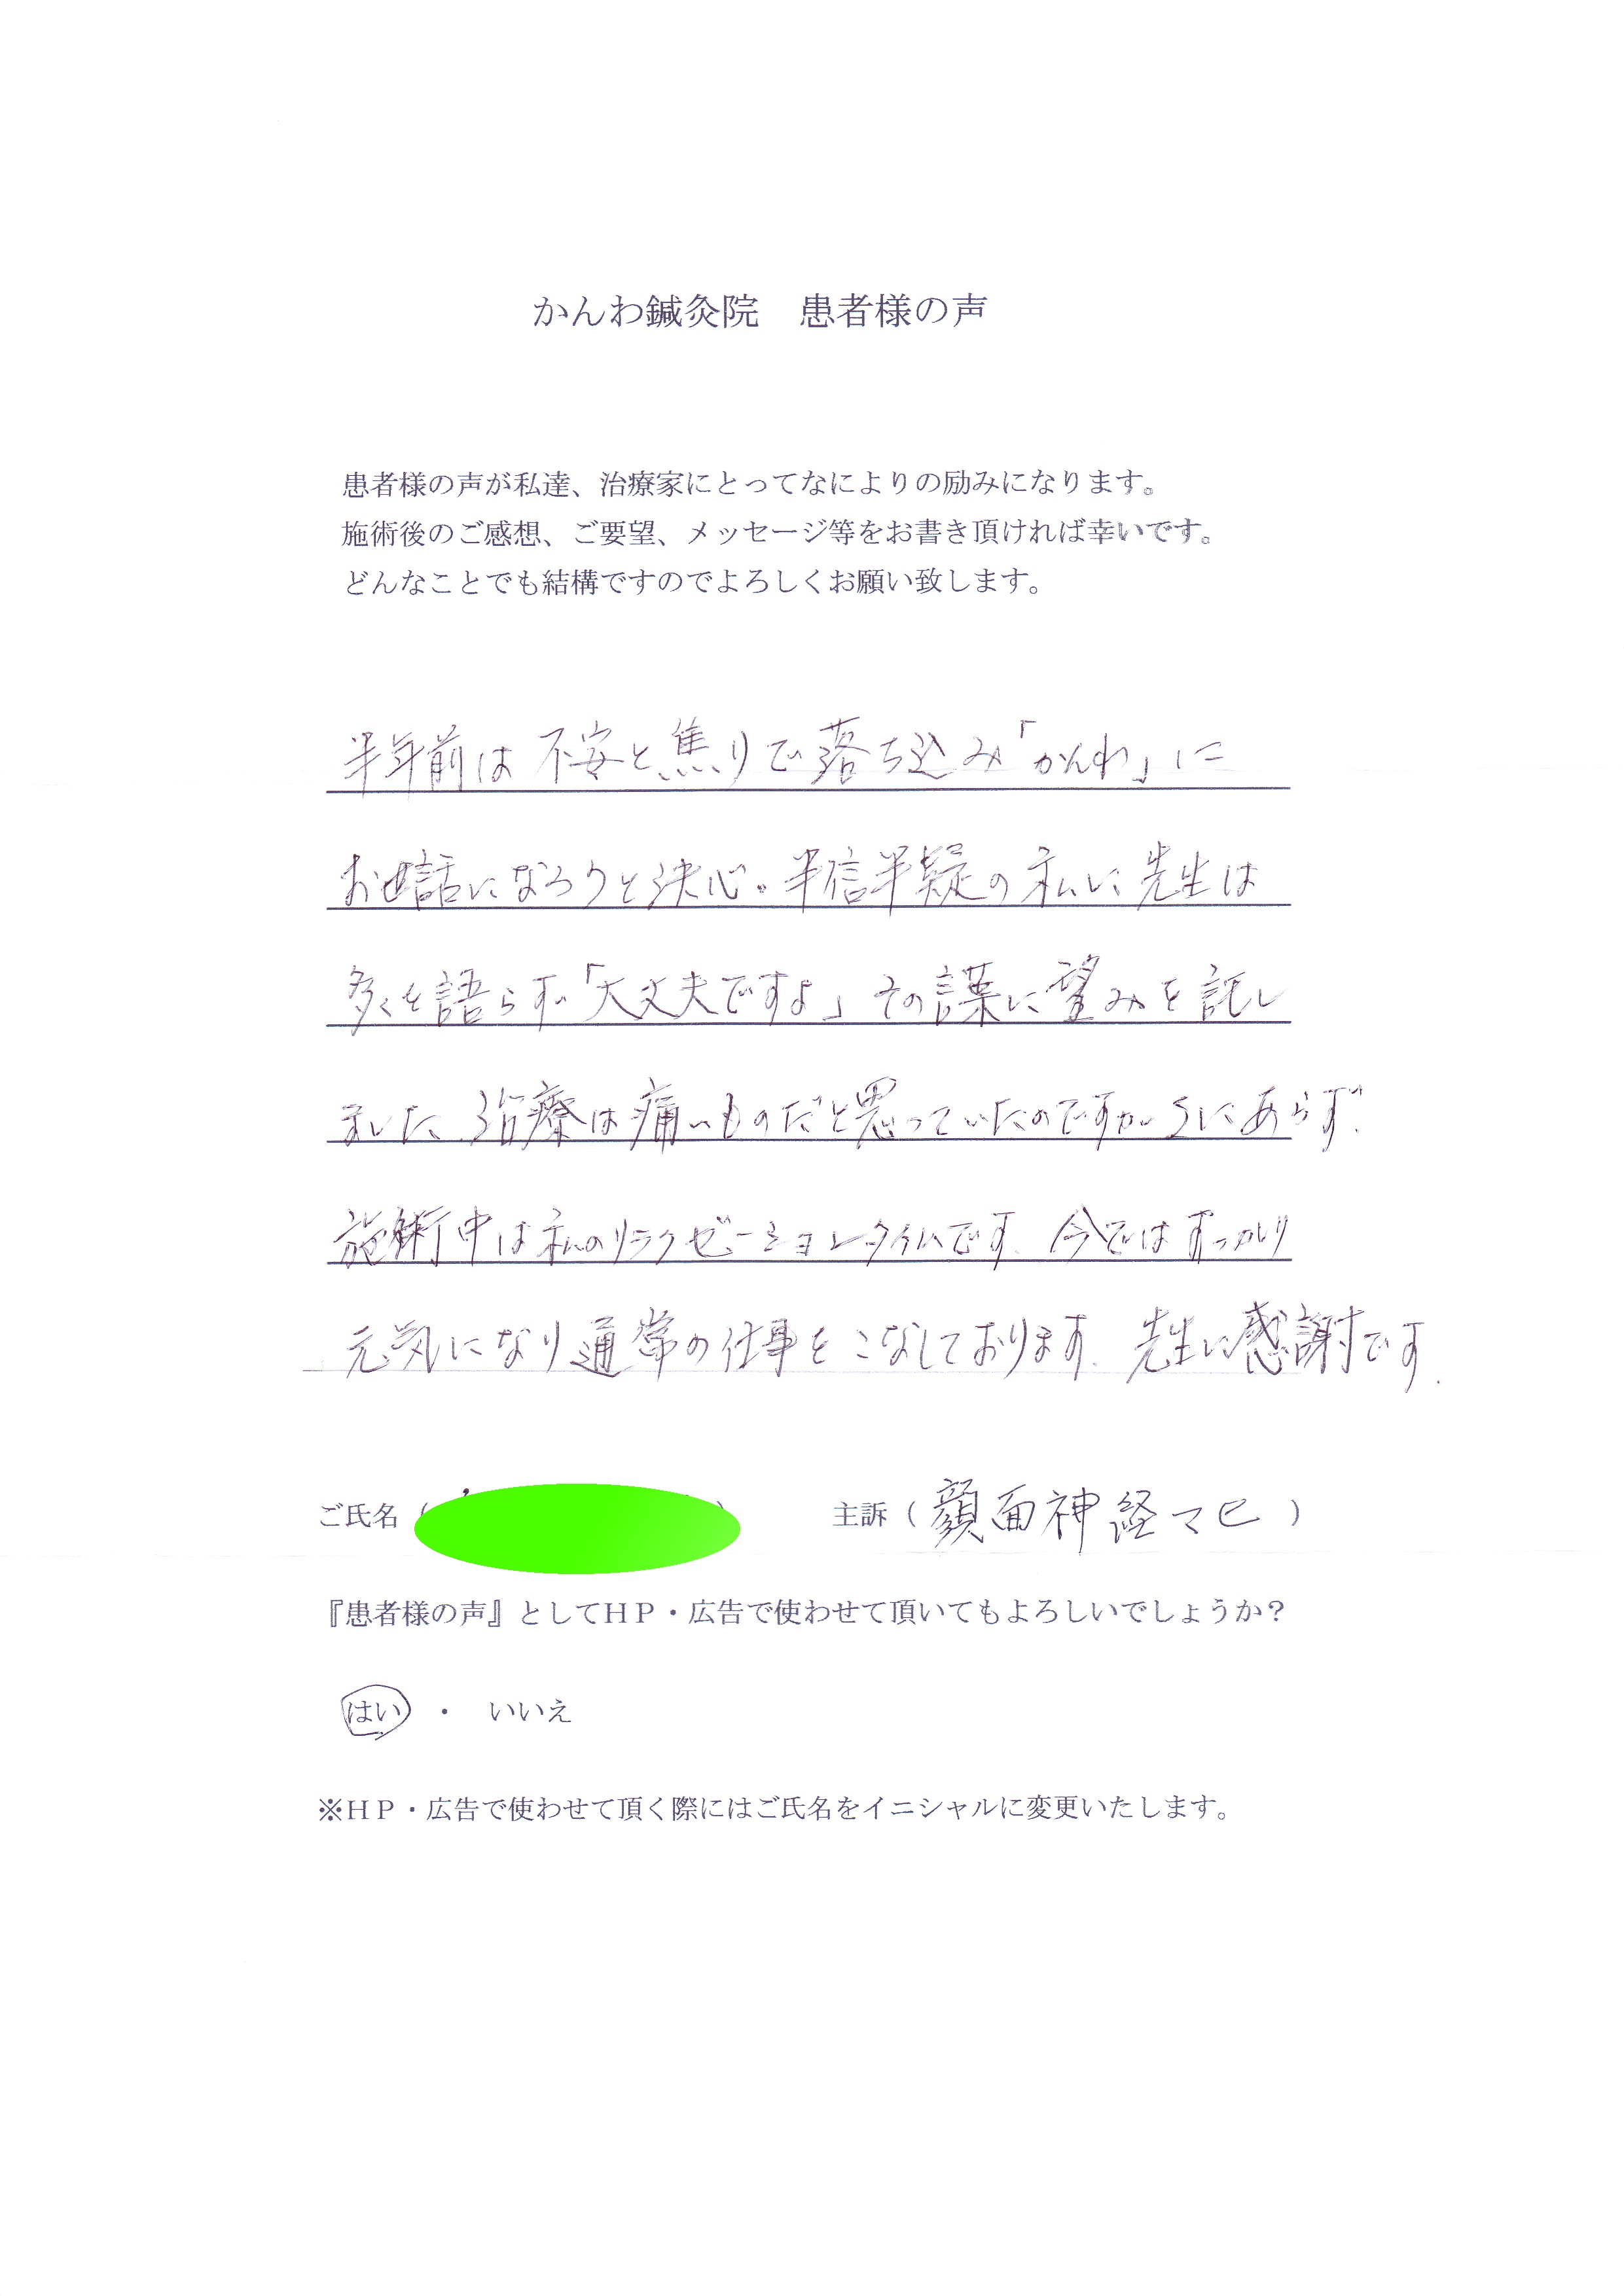 かんわ鍼灸院　患者様の声
患者様の声が私達、治療家にとってなによりの励みになります。
施術後のご感想、ご要望、メッセージ等をお書き頂ければ幸いです。
どんなことでも結構ですのでよろしくお願い致します。
半年前は不安と焦りで落ち込み「かんわ」に
お世話になろうと決心。半信半疑の私に先生は
多くを語らず「大丈夫ですよ」その言葉に望みを託し
ました。治療は痛いものだと思っていたのですが さにあらず.
施術中は私のリラクゼーションタイムです. 今ではすっかり
元気になり通常の仕事をこなしております. 先生に感謝です.
ご氏名（　　　） 主訴（顔面神経マヒ）
『患者様の声』としてＨＰ・広告で使わせて頂いてもよろしいでしょうか？
はい　・　いいえ
※ＨＰ・広告で使わせて頂く際にはご氏名をイニシャルに変更いたします。